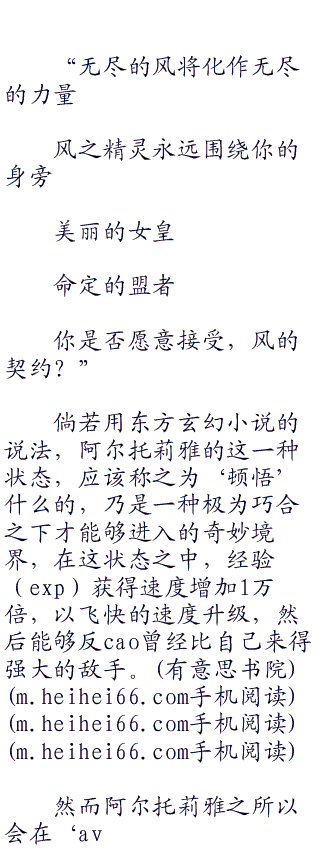 “无尽的风将化作无尽
的力量
风之精灵永远围绕你的
身旁
美丽的女皇
命定的盟者
你是否愿意接受，风的
契约？”
倘若用东方玄幻小说的
说法，阿尔托莉雅的这一种
状态，应该称之为‘顿悟’
什么的，乃是一种极为巧合
之下才能够进入的奇妙境
界，在这状态之中，经验
（exp）获得速度增加1万
倍，以飞快的速度升级，然
后能够反cao曾经比自己来得
强大的敌手。(有意思书院)
(m.heihei66.com手机阅读)
(m.heihei66.com手机阅读)
(m.heihei66.com手机阅读)
然而阿尔托莉雅之所以
会在‘av